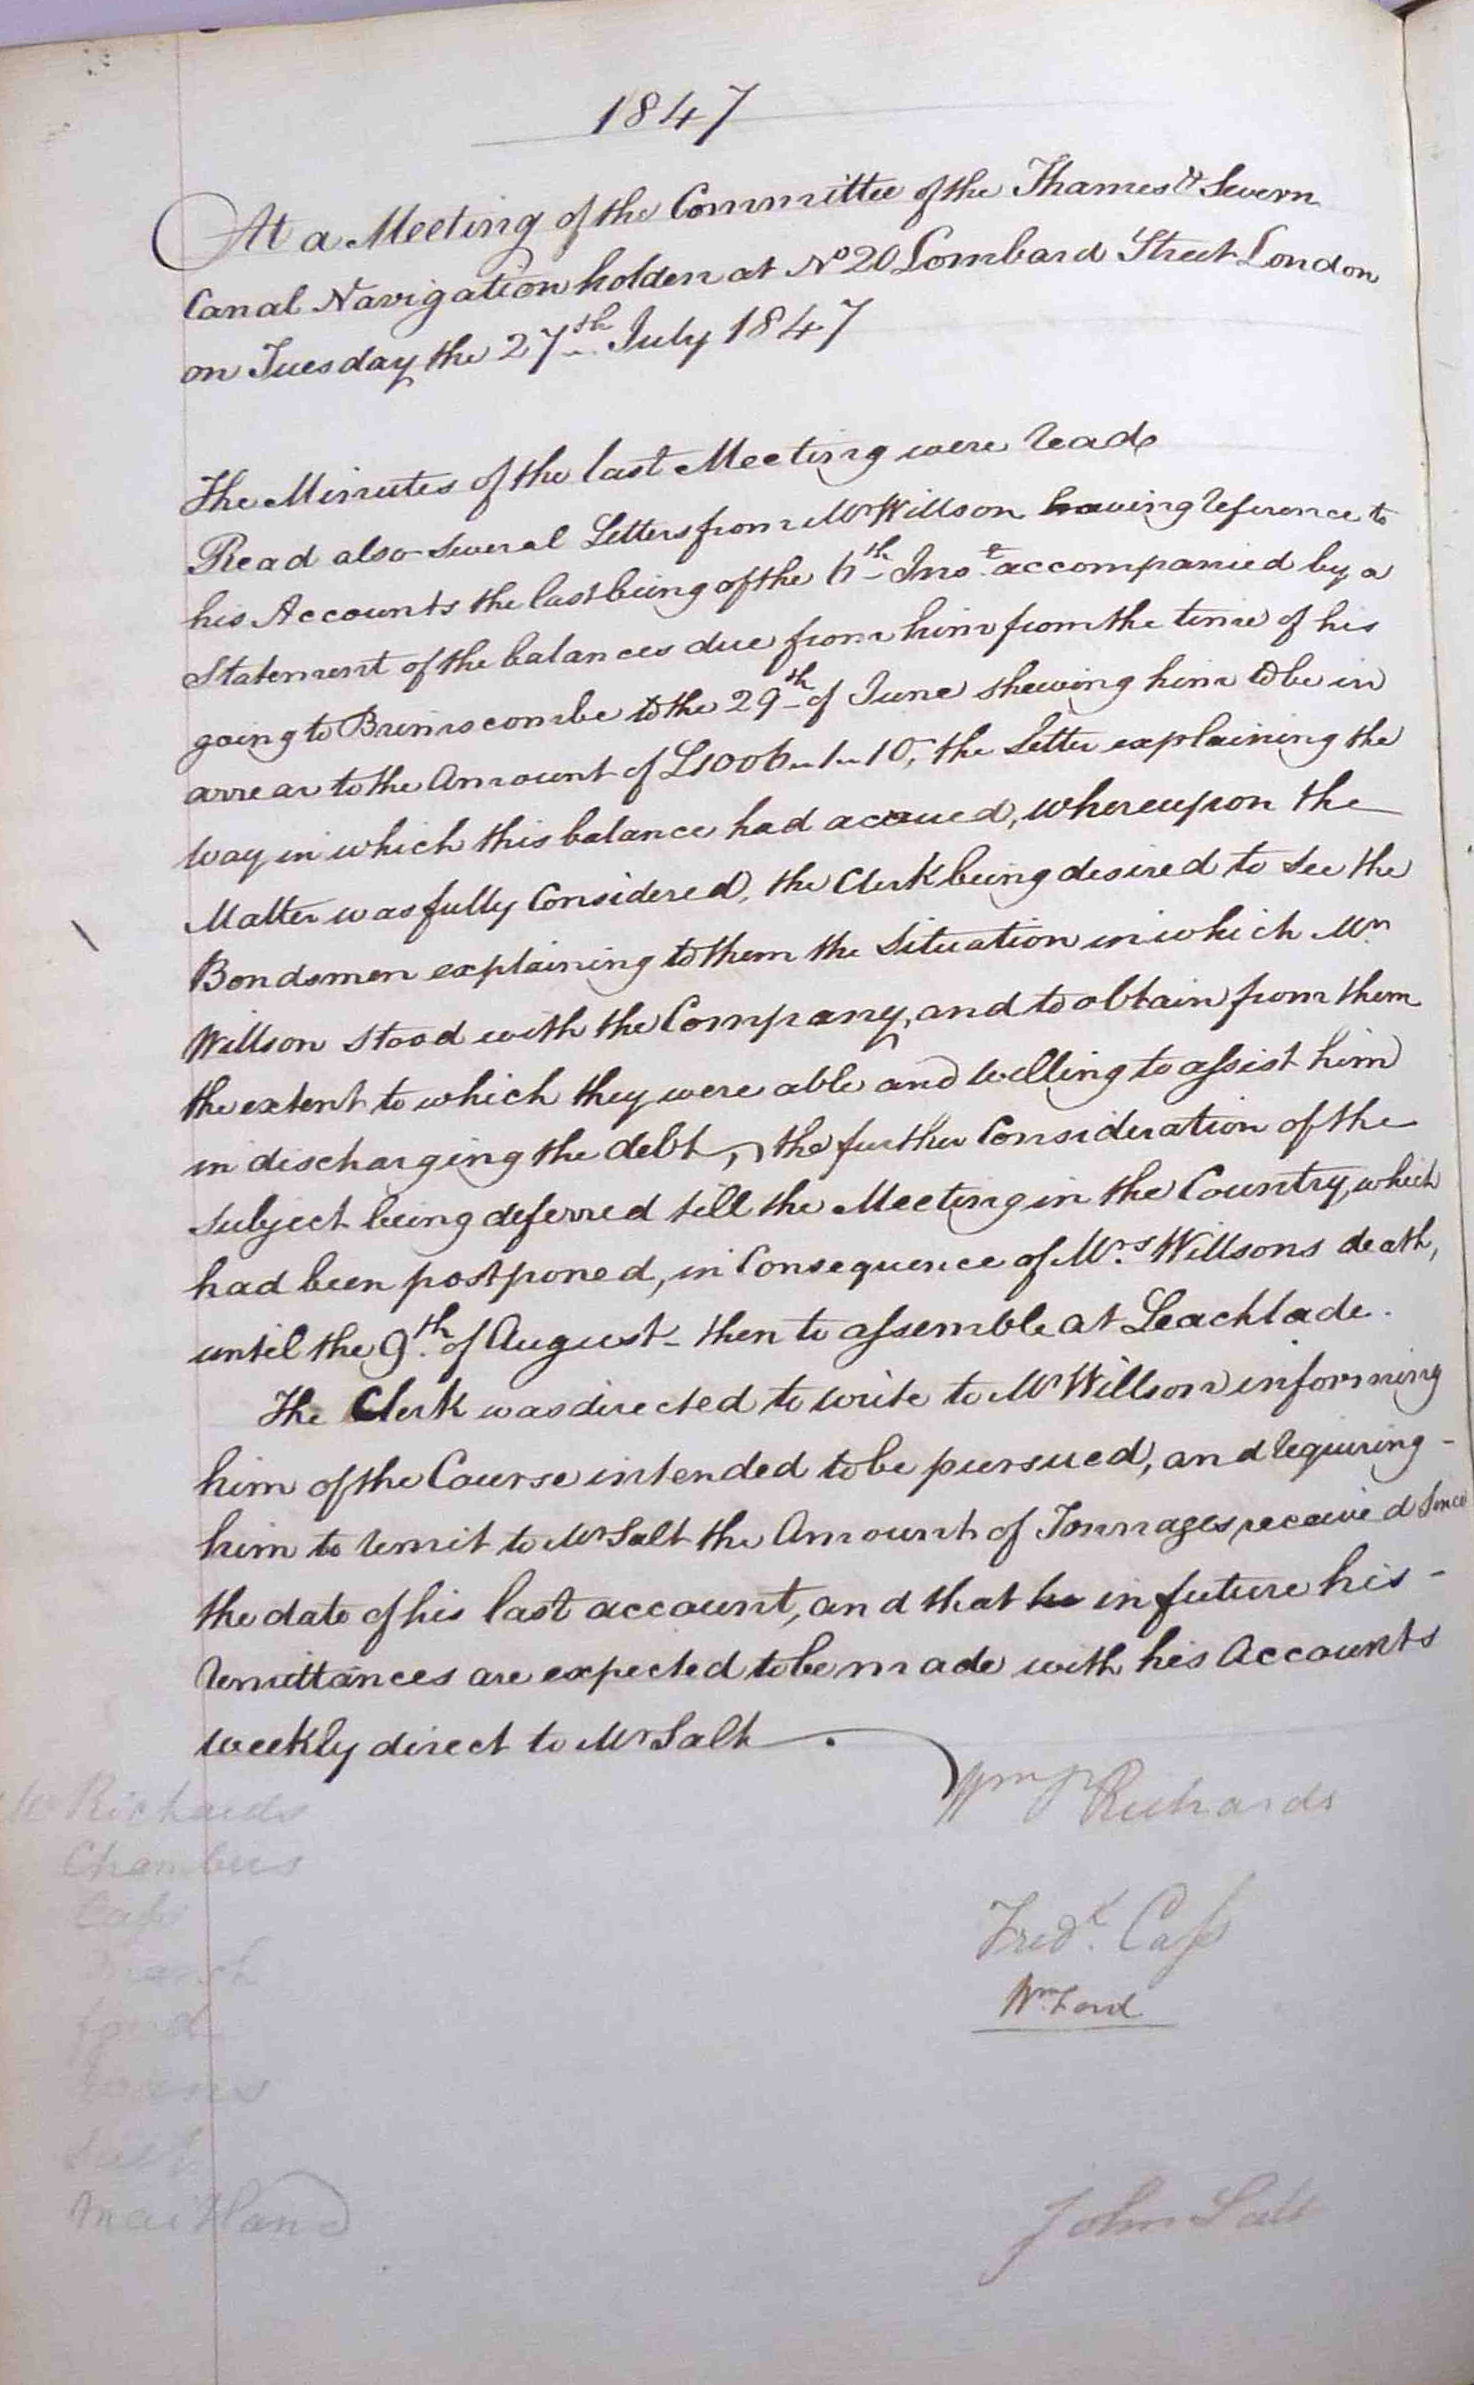 1847
At a Meeting of the Committee of the Thames & Severn
Canal Navigation holden at No 20 Lombard Street London
on Tuesday the 27th July 1847
The Minutes of the last Meeting were read
Read also several Letters from Mr Willson having reference to
his Accounts the last being of the 6th Inst accompanied by a
Statement of the balances due from him from the time of his
going to Brimscombe to the 29th of June shewing him to be in
arrear to the Amount of £1006..1..10, the Letter explaining the
way in which this balance had accrued, whereupon the
Matter was fully Considered, the Clerk being desired to see the
Bondsmen explaining to them the Situation in which Mr
Willson stood with the Company, and to obtain from them
the extent to which they were able and willing to assist him
in discharging the debt, the further Consideration of the
subject being deferred till the Meeting in the Country, which
had been postponed, in Consequence of Mrs Willsons death,
until the 9th of August - then to assemble at Leachlade.
The Clerk was directed to write to Mr Willson informing
him of the Course intended to be pursued, and requiring -
him to remit to Mr Salt the Amount of Tonnages received since
the date of his last account, and that he in future his -
remittances are expected to be made with his Accounts
weekly direct to Mr Salt
Wm Richards
Mr Richards
Chambers
Cass
Fredk. Cass
Wm Ford
Ford
Salt
Maitland
John Salt